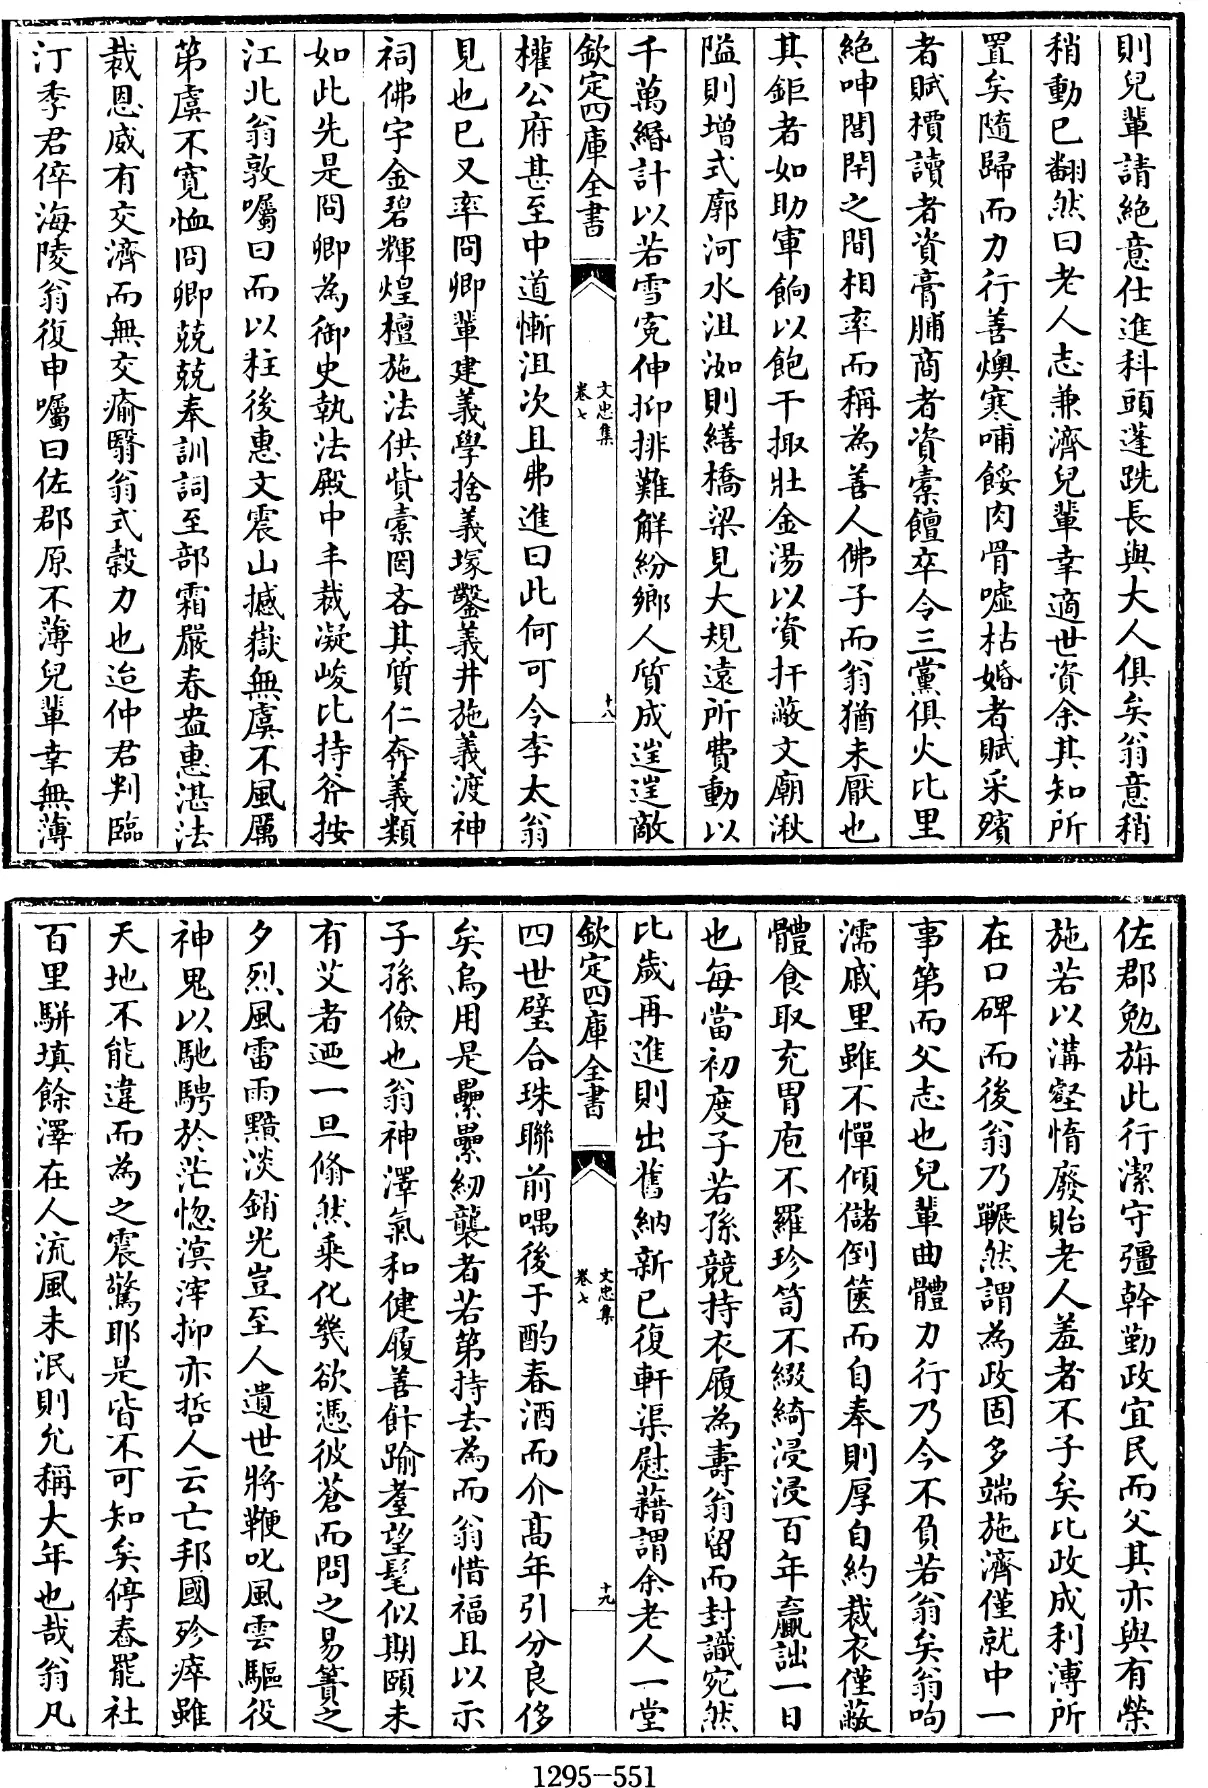 則兒輩請絶意仕進科頭蓬跣長與大人俱矣翁意稍
稍動已翻然曰老人志兼濟兒輩幸適世資余其知所
置矣隨歸而力行善燠寒哺餒肉骨噓枯婚者賦采殯
者賦檟讀者資膏脯商者資橐饘卒令三黨俱火比里
絶呻閭閈之間相率而稱為善人佛子而翁猶未厭也
其鉅者如助軍餉以飽干掫壯金湯以資扞蔽文廟湫
隘則增式廓河水沮洳則繕橋梁見大規遠所費動以
千萬緡計以若雪寃伸抑排難解紛鄉人質成逞逞敵
欽定四庫全書
文忠集
卷七
十八
權公府甚至中道慚沮次且弗進曰此何可令李太翁
見也已又率冏卿輩建義學捨義塚鑿義井施義渡神
祠佛宇金碧輝煌檀施法供貲橐罔吝其質仁奔義類
如此先是冏卿為御史執法殿中丰裁凝峻比持斧按
江北翁敦囑曰而以柱後惠文震山撼嶽無虞不風厲
第虞不寛恤冏卿兢兢奉訓詞至部霜嚴春盎惠湛法
裁恩威有交濟而無交瘉緊翁式穀力也迨仲君判臨
汀季君倅海陵翁復申囑曰佐郡原不薄兒輩幸無薄
佐郡勉旃此行潔守彊幹勤政宜民而父其亦與有榮
施若以溝壑惰廢貽老人羞者不子矣比政成利溥所
在口碑而後翁乃囅然謂為政固多端施濟僅就中一
事第而父志也兒輩曲體力行乃今不負若翁矣翁呴
濡戚里雖不憚傾儲倒篋而自奉則厚自約裁衣僅蔽
體食取充胃庖不羅珍笥不綴綺浸浸百年贏詘一日
也每當初度子若孫競持衣履為壽翁留而封識宛然
比歲再進則出舊納新已復軒渠慰藉謂余老人一堂
欽定四庫全書
文忠集
卷七
十九
四世璧合珠聯前喁後于酌春酒而介髙年引分良侈
矣烏用是纍纍紉襲者若第持去為而翁惜福且以示
子孫儉也翁神澤氣和健履善飰踰耋望髦似期頤未
有艾者迺一旦翛然乘化幾欲憑彼蒼而問之易簀之
夕烈風雷雨黯淡銷光豈至人遺世將鞭叱風雲驅役
神鬼以馳騁於茫惚溟涬抑亦哲人云亡邦國殄瘁雖
天地不能違而為之震驚耶是皆不可知矣停舂罷社
百里駢填餘澤在人流風未泯則允稱大年也哉翁凡
1295-551